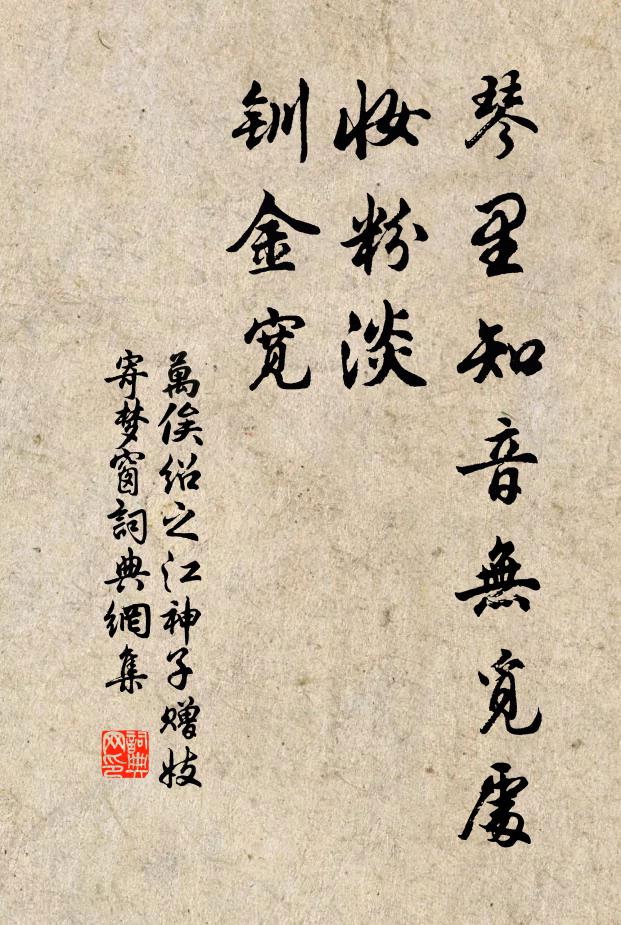 琴里知音無覓處
妝粉淡
釧金寬
萬俟紹之江神子贈妓
寄梦窗詞典網集
詞典網印